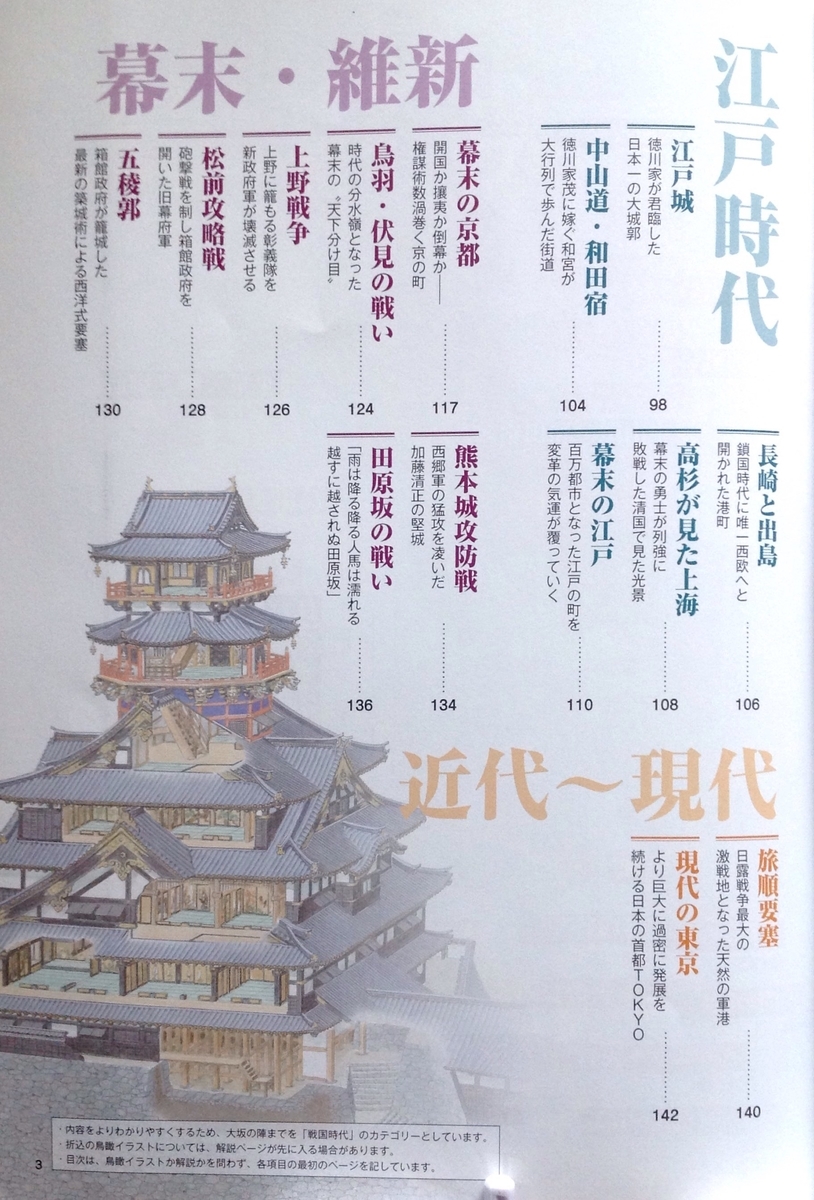 江戸時代
江戸城
徳川家が君臨した
日本一の大城郭
98
中山道・和田宿
徳川家茂に嫁ぐ和宮が
大行列で歩んだ街道
104
長崎と出島
鎖国時代に唯一西欧へと
開かれた港町
106
高杉が見た上海
幕末の勇士が列強に
敗戦した清国で見た光景
108
幕末の江戸
百万都市となった江戸の町を
変革の気運が覆っていく
110
幕末・維新
幕末の京都
開国か攘夷か倒幕か――
権謀術数渦巻く京の町
117
鳥羽・伏見の戦い
時代の分水嶺となった
幕末の〝天下分け目〟
124
上野戦争
上野に籠もる彰義隊を
新政府軍が壊滅させる
126
松前攻略戦
砲撃戦を制し箱館政府を
開いた旧幕府軍
128
五稜郭
箱館政府が籠城した
最新の築城術による西洋式要塞
130
熊本城攻防戦
西郷軍の猛攻を凌いだ
加藤清正の堅城
134
田原坂の戦い
「雨は降る降る人馬は濡れる
越すに越されぬ田原坂」
136
近代〜現代
旅順要塞
日露戦争最大の
激戦地となった天然の軍港
140
現代の東京
より巨大に過密に発展を
続ける日本の首都TOKYO
142
・内容をよりわかりやすくするため、大坂の陣までを「戦国時代」のカテゴリーとしています。
・折込の鳥瞰イラストについては、解説ページが先に入る場合があります。
・目次は、鳥瞰イラストか解説かを問わず、各項目の最初のページを記しています。
3